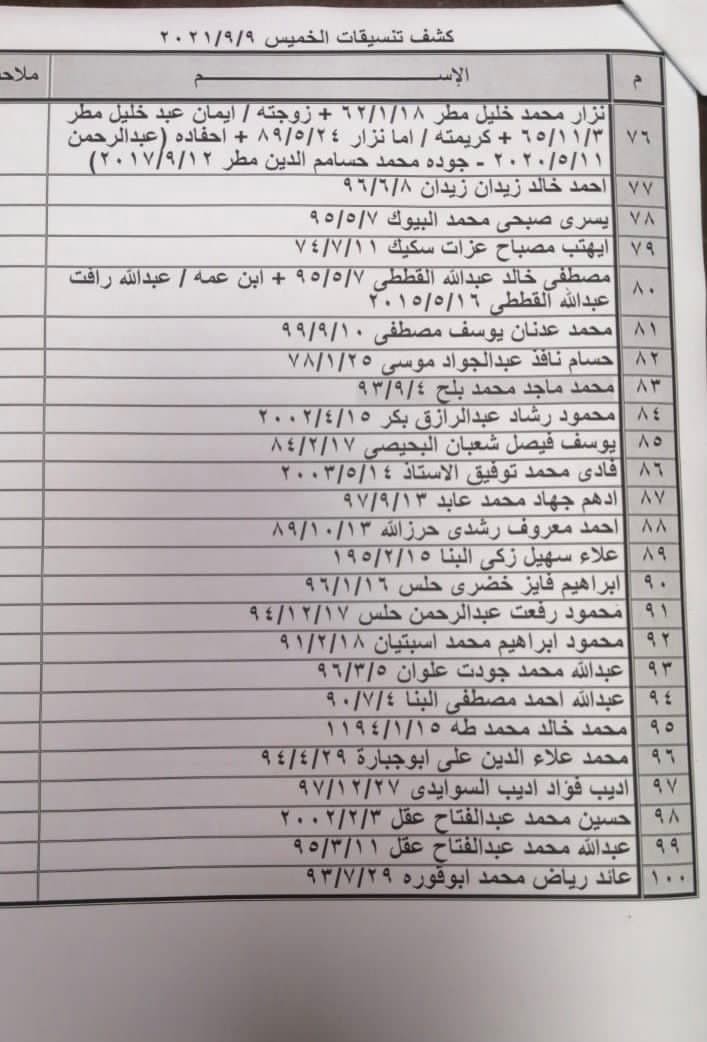 كشف تنسيقات الخميس ٢٠٢١/٩/٩
م الإســــــــــم ملاحـ
٧٦ نزار محمد خليل مطر ٦٢/١/١٨ + زوجته / ايمان عبد خليل مطر
٦٥/١١/٣ + كريمته / اما نزار ٨٩/٥/٢٤ + احفاده (عبدالرحمن
٢٠٢٠/٥/١١ - جوده محمد حسامم الدين مطر ٢٠١٧/٩/١٢)
٧٧ احمد خالد زيدان زيدان ٩٦/٦/٨
٧٨ يسرى صبحى محمد البيوك ٩٥/٥/٧
٧٩ ايهتب مصباح عزات سكيك ٧٤/٧/١١
٨٠ مصطفى خالد عبدالله القططى ٩٥/٥/٧ + ابن عمه / عبدالله رافت
عبدالله القططى ٢٠١٥/٥/١٦
٨١ محمد عدنان يوسف مصطفى ٩٩/٩/١٠
٨٢ حسام نافذ عبدالجواد موسى ٧٨/١/٢٥
٨٣ محمد ماجد محمد بلح ٩٣/٩/٤
٨٤ محمود رشاد عبدالرازق بكر ٢٠٠٢/٤/١٥
٨٥ يوسف فيصل شعبان البحيصى ٨٤/٢/١٧
٨٦ فادى محمد توفيق الاستاذ ٢٠٠٣/٥/١٤
٨٧ ادهم جهاد محمد عابد ٩٧/٩/١٣
٨٨ احمد معروف رشدى حرزالله ٨٩/١٠/١٣
٨٩ علاء سهيل زكى البنا ١٩٥/٢/١٥
٩٠ ابراهيم فايز خضرى حلس ٩٦/١/١٦
٩١ محمود رفعت عبدالرحمن حلس ٩٤/١٢/١٧
٩٢ محمود ابراهيم محمد اسبتيان ٩١/٢/١٨
٩٣ عبدالله محمد جودت علوان ٩٦/٣/٥
٩٤ عبدالله احمد مصطفى البنا ٩٠/٧/٤
٩٥ محمد خالد محمد طه ١١٩٤/١/١٥
٩٦ محمد علاء الدين على ابوجبارة ٩٤/٤/٢٩
٩٧ اديب فؤاد اديب السوايدى ٩٧/١٢/٢٧
٩٨ حسين محمد عبدالفتاح عقل ٢٠٠٢/٢/٣
٩٩ عبدالله محمد عبدالفتاح عقل ٩٥/٣/١١
١٠٠ عائد رياض محمد ابوقوره ٩٣/٧/٢٩